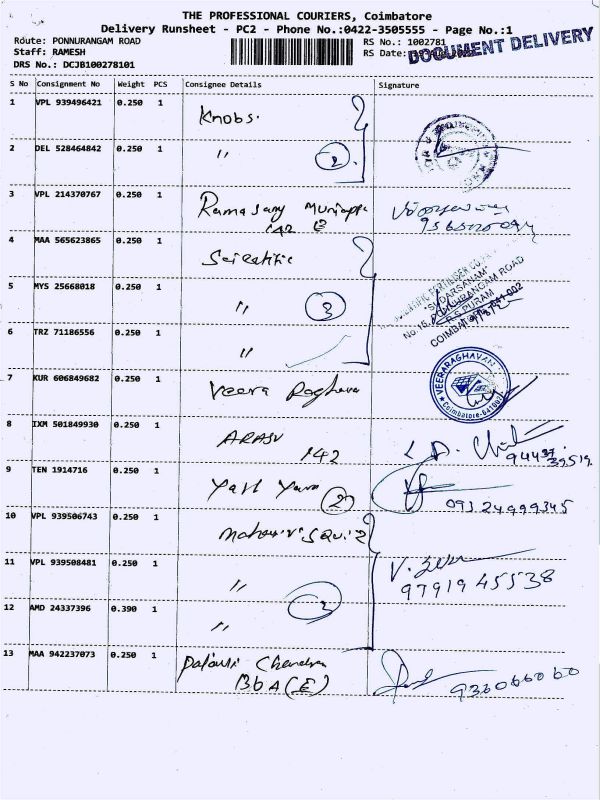 THE PROFESSIONAL COURIERS, Coimbatore
Delivery Runsheet - PC2 - Phone No.:0422-3505555 - Page No.:1
Route: PONNURANGAM ROAD
RS No.: 1002781
Staff: RAMESH
RS Date:
DOCUMENT DELIVERY
DRS No.: DCJB100278101
S No Consignment No Weight PCS Consignee Details Signature
1 VPL 939496421 0.250 1 Knobs.
2 DEL 528464842 0.250 1 " 2
3 VPL 214370767 0.250 1 Ramasamy
142 E
4 MAA 565623865 0.250 1 Scientific
5 MYS 25668018 0.250 1 " 3
"SUDARSANAM"
PONNURANGAM ROAD
R S PURAM
6 TRZ 71186556 0.250 1 "
7 KUR 606849682 0.250 1 Veera Raghava
VEERARAGHAVAN
Coimbatore-641002
8 IXM 501849930 0.250 1 ARASU
142
9 TEN 1914716 0.250 1 Yash
2
093 24999345
10 VPL 939506743 0.250 1
11 VPL 939508481 0.250 1 "
9791945538
12 AMD 24337396 0.390 1 "
13 MAA 942237073 0.250 1 Chandra
136A (E)